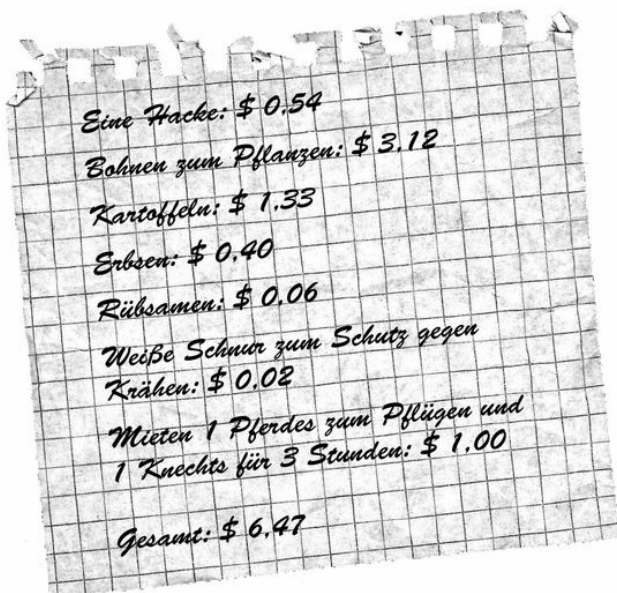 Eine Hacke: $ 0,54
Bohnen zum Pflanzen: $ 3,12
Kartoffeln: $ 1,33
Erbsen: $ 0,40
Rübsamen: $ 0,06
Weiße Schnur zum Schutz gegen
Krähen: $ 0,02
Mieten 1 Pferdes zum Pflügen und
1 Knechts für 3 Stunden: $ 1,00
Gesamt: $ 6,47